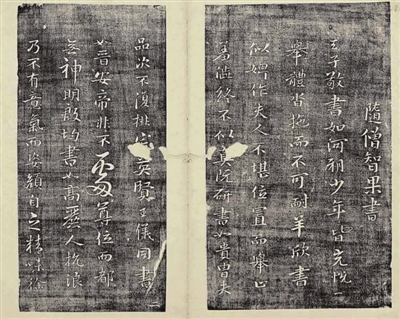 隨僧智果書
王子敬書如河朔少年皆充悅
舉體沓拖而不可耐羊欣書
似婢作夫人不堪位置而舉止
羞澀終不似真阮研書如貴胄失
品次不復排突英賢王儀同書
如晉安帝非不處尊位而都
無神明殷鈞書如高麗人抗浪
乃不有意氣而姿顏自乏精味徐